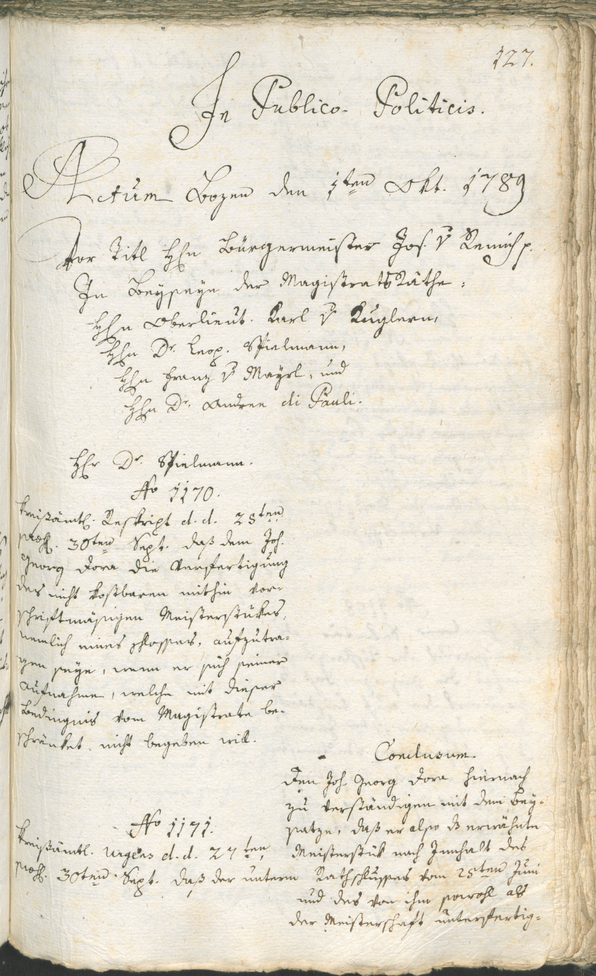 127.
In Publico-Politicis.
Actum Bozen den 1ten Okt. 1789
Vor Titl Hhn Bürgermeister Jos. v
In Beyseyn der Magistrats Räthe:
Hhn Oberlieut. Karl v Kuglern,
Hhn Dr. Leop. Spielmann,
Hhn Franz v Mayrl, und
Hhn Dr. Andree di Pauli.
Hhr Dr. Spielmann.
No 1170.
Kreisämtl. Reskript d. d. 28ten
30ten Sept. daß dem Joh.
Georg Dora die Verfertigung
des nicht kostbaren mithin vor-
schriftmäsigen Meisterstükes,
nemlich eines aufzutra-
gen seye, wenn er sich seiner
Aufnahme, welche mit dieser
Bedingniß vom Magistrate be-
schränket, nicht begeben will.
Conclusum.
Den Joh. Georg Dora hiernach
zu verständigen mit dem Bey-
satze, daß er also das erwähnte
Meisterstük nach Innhalt des
Rathschlusses vom 25ten Juni
und des von ihm sowohl als
der Meisterschaft unterfertig-
No 1171.
Kreisämtl. Urgens d. d. 27ten,
30ten Sept. daß der unterm